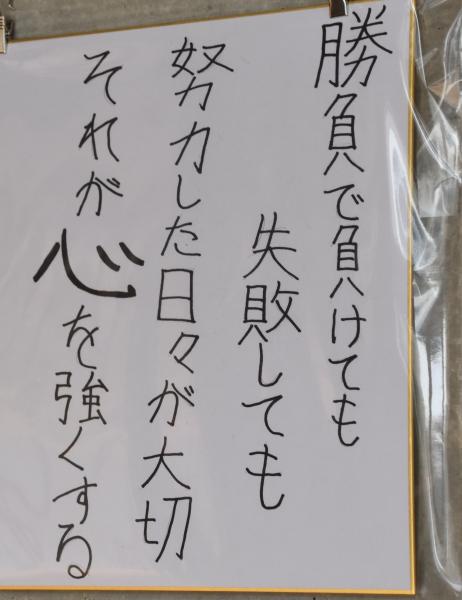 勝負で負けても
失敗しても
努力した日々が大切
それが心を強くする